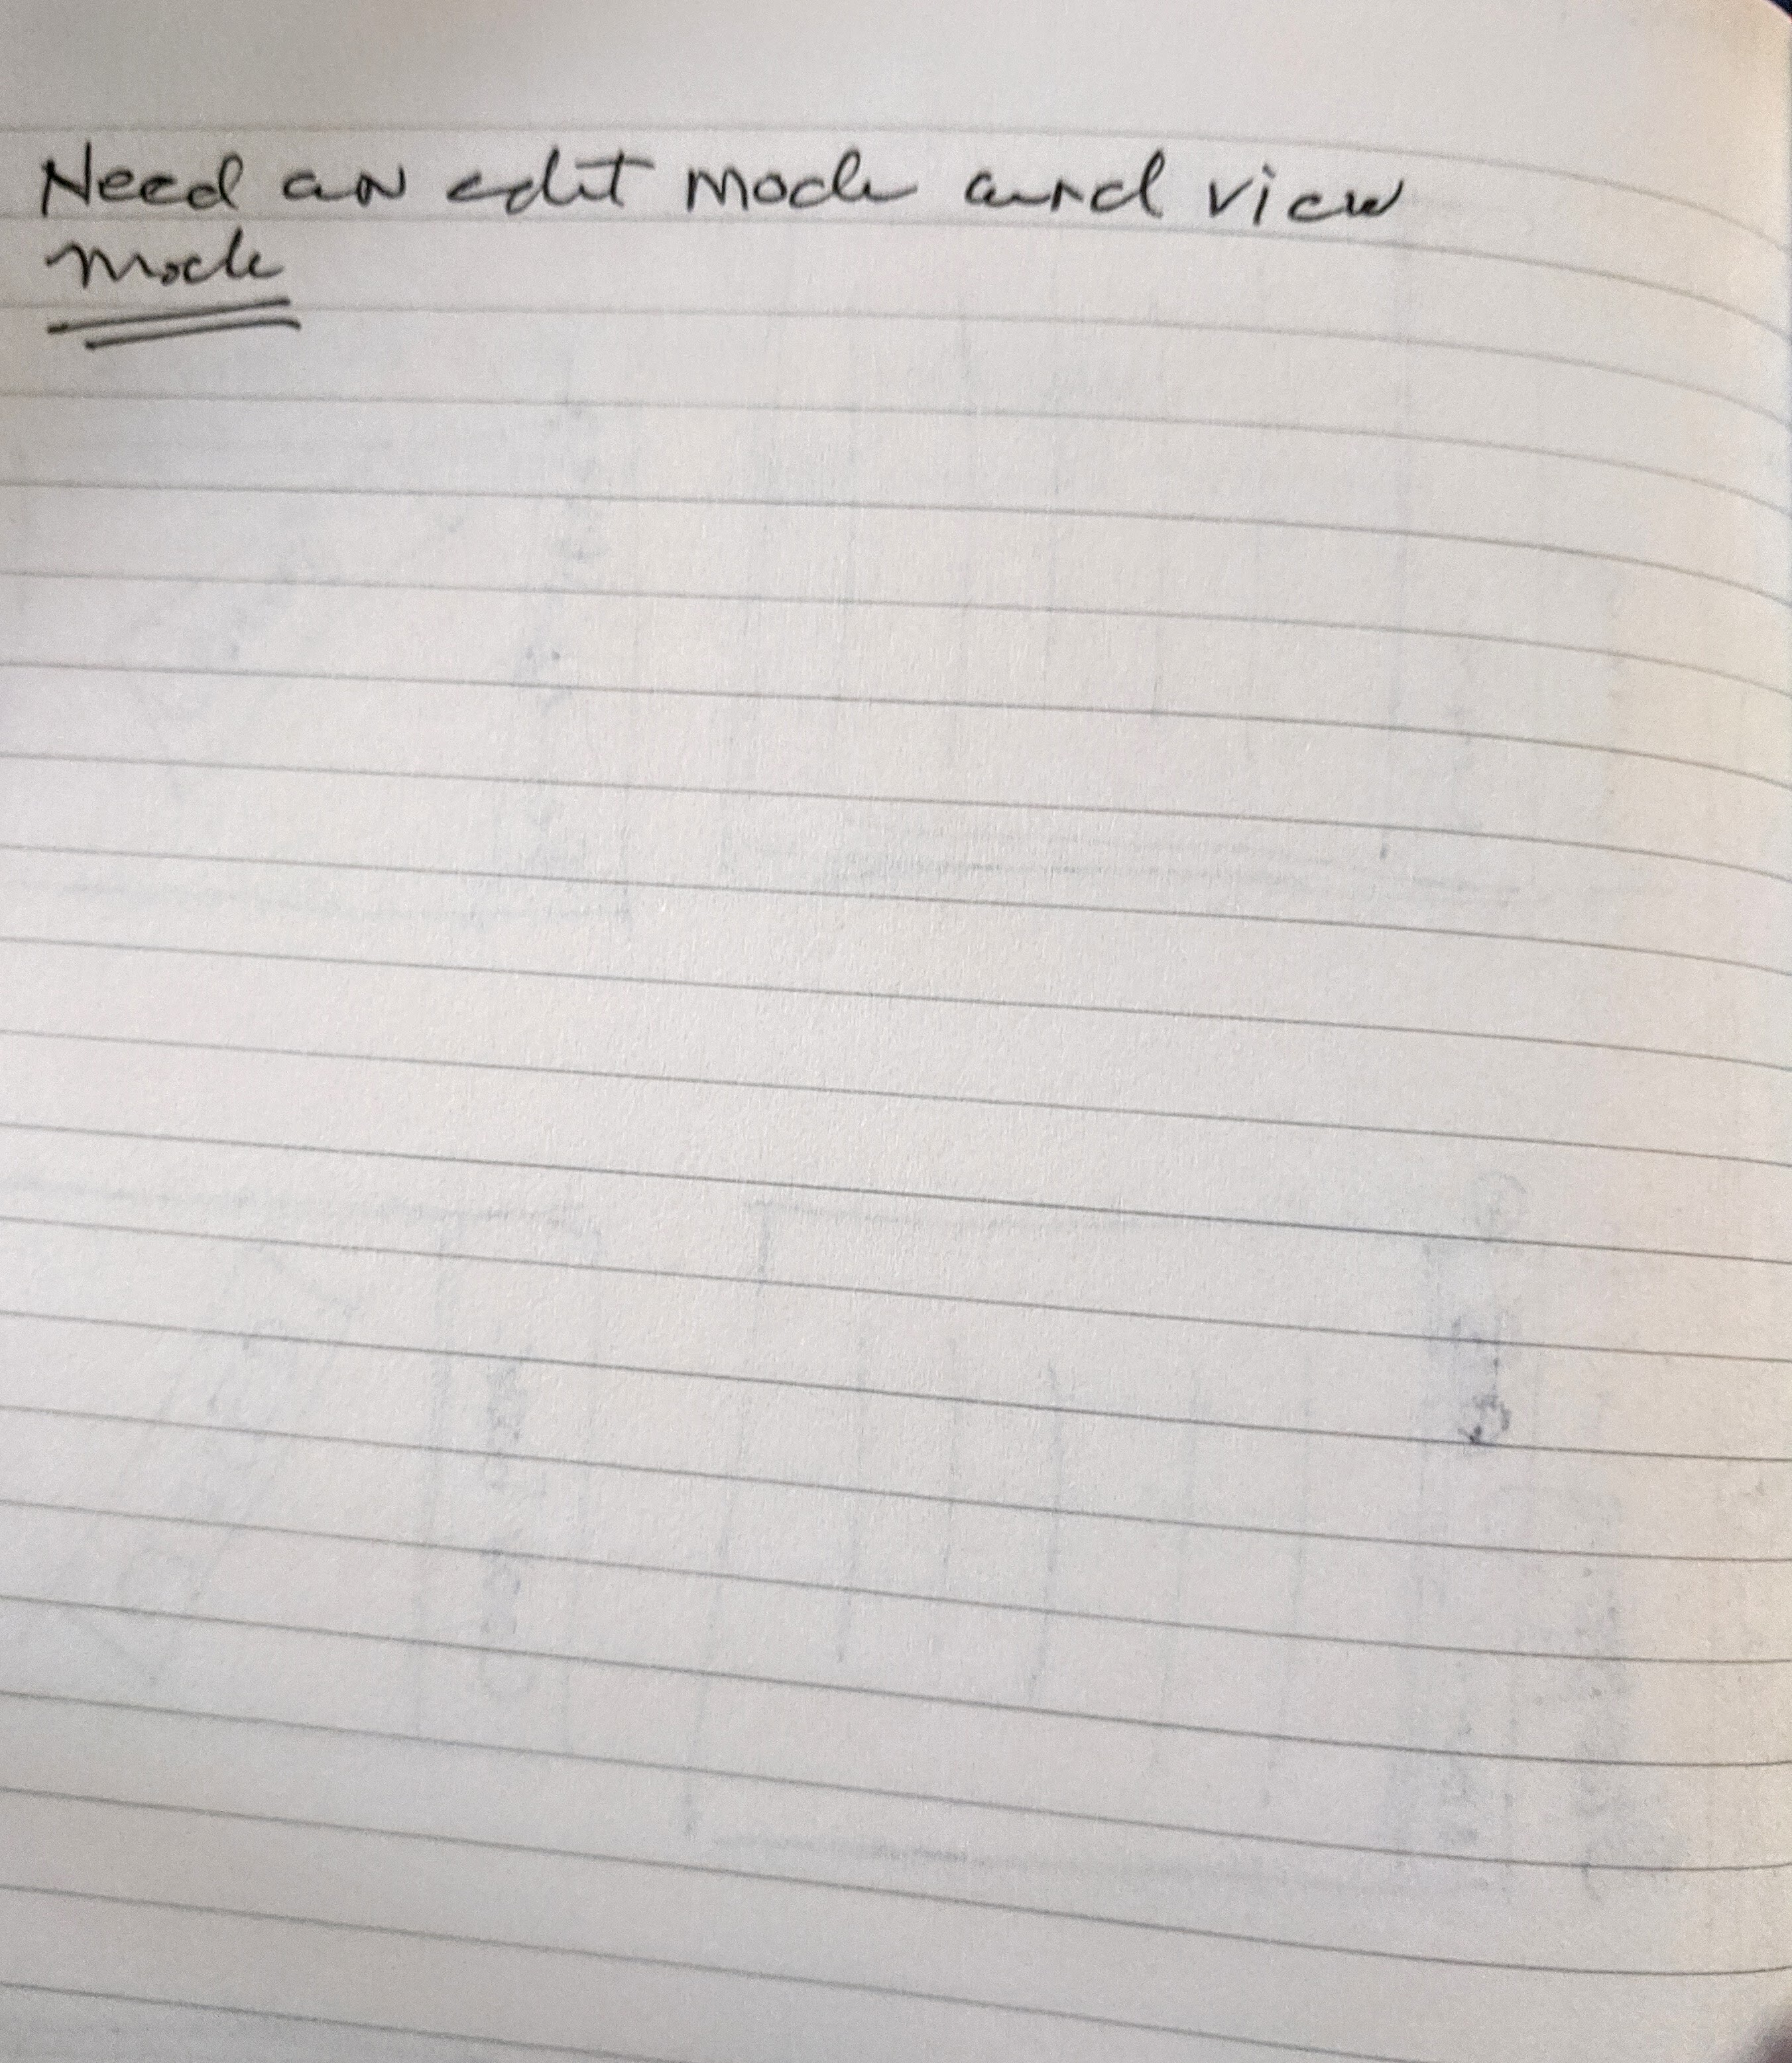 Need an edit mode and view
mode